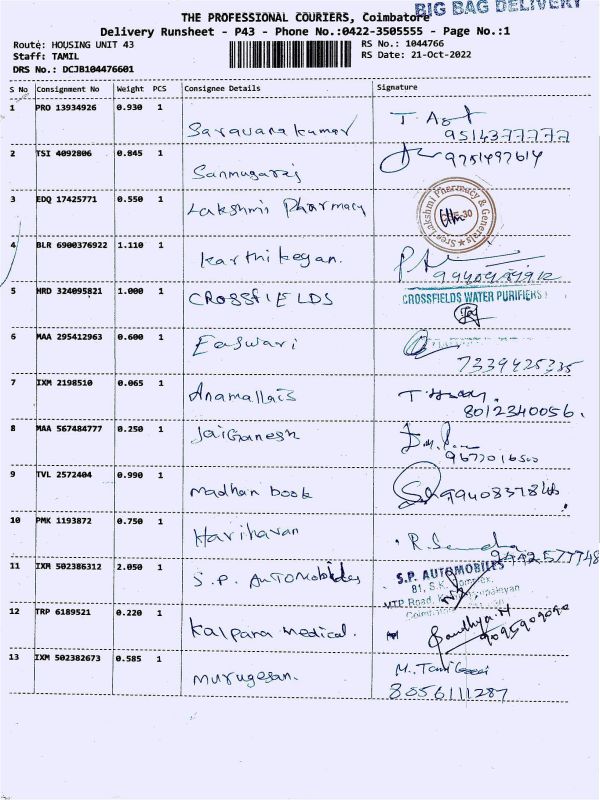 BIG BAG DELIVERY
THE PROFESSIONAL COURIERS, Coimbatore
Delivery Runsheet - P43 - Phone No.:0422-3505555 - Page No.:1
Route: HOUSING UNIT 43
RS No.: 1044766
Staff: TAMIL
RS Date: 21-Oct-2022
DRS No.: DCJB104476601
S No Consignment No Weight PCS Consignee Details Signature
1 PRO 13934926 0.930 1 Saravana kumar
9514377777
2 TSI 4092806 0.845 1 Sanmugaraj 9751497614
3 EDQ 17425771 0.550 1 Lakshmi Pharmacy
Sree Lakshmi Pharmacy & Generals
4 BLR 6900376922 1.110 1 Karthikeyan.
5 HRD 324095821 1.000 1 CROSSFIELDS CROSSFIELDS WATER PURIFIERS
6 MAA 295412963 0.600 1 Easwari
7339425335
7 IXM 2198510 0.065 1 Anamallais
8012340056.
8 MAA 567484777 0.250 1 Jai Ganesh
9 TVL 2572404 0.990 1 Madhan book
10 PMK 1193872 0.750 1 Hariharan
9442577748
11 IXM 502386312 2.050 1 S.P. Automobiles S.P. AUTOMOBILES
81, S.K. Complex,
MTP Road,
12 TRP 6189521 0.220 1 Kalpana medical. Sandhya.M
9095909090
13 IXM 502382673 0.585 1 Murugesan.
8056111287